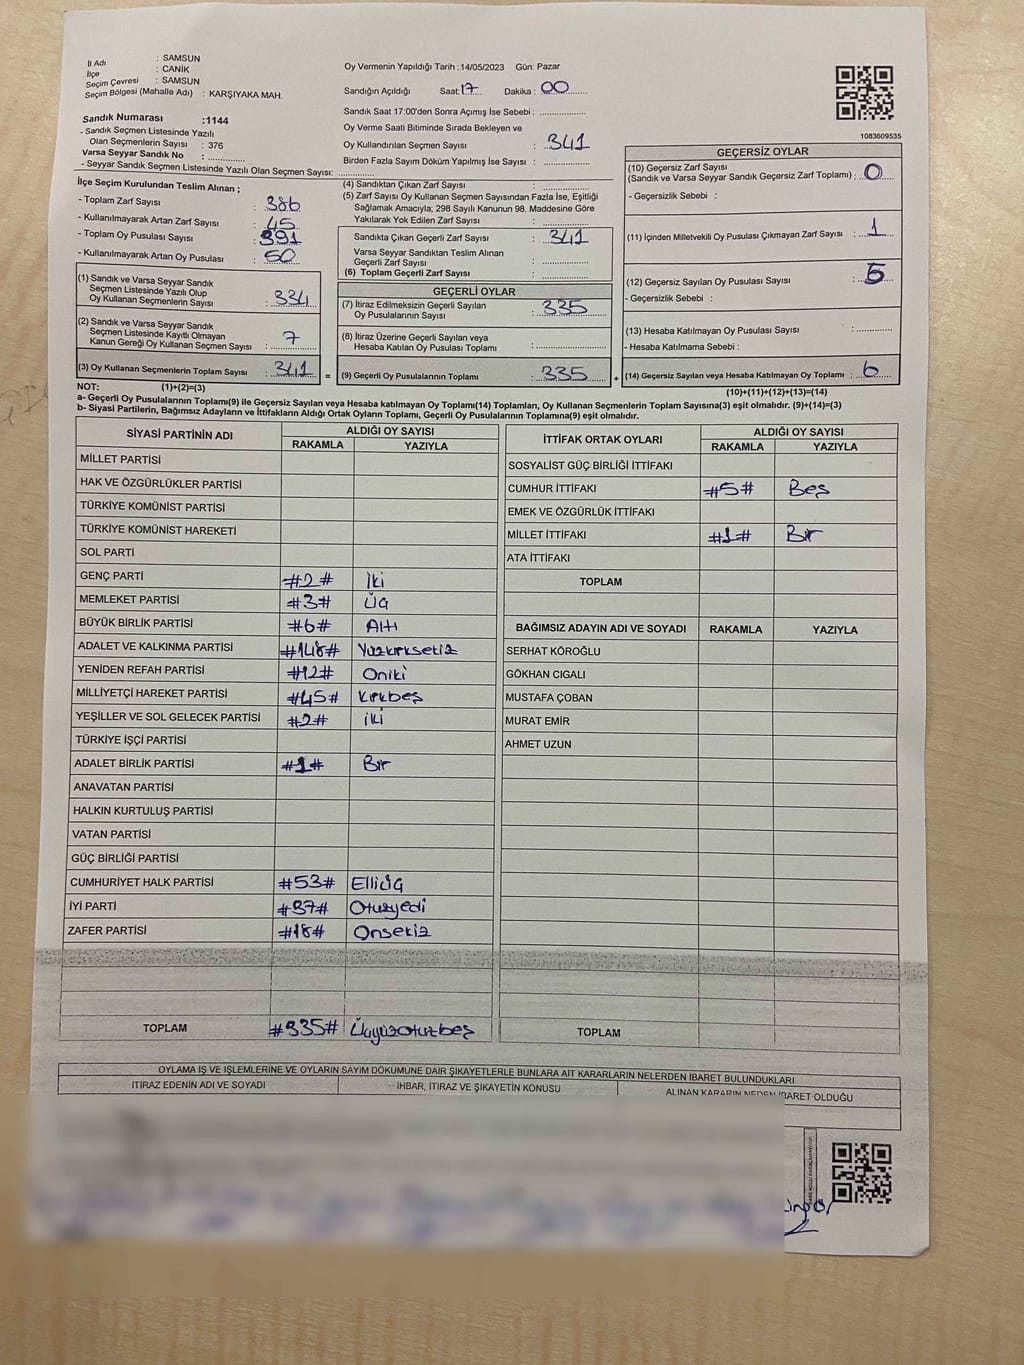 İl Adı : SAMSUN
İlçe : CANİK
Seçim Çevresi : SAMSUN
Seçim Bölgesi (Mahalle Adı) : KARŞIYAKA MAH.
Sandık Numarası :1144
- Sandık Seçmen Listesinde Yazılı
Olan Seçmenlerin Sayısı : 376
Varsa Seyyar Sandık No :
- Seyyar Sandık Seçmen Listesinde Yazılı Olan Seçmen Sayısı:
Oy Vermenin Yapıldığı Tarih :14/05/2023 Gün: Pazar
Sandığın Açıldığı Saat: 17 Dakika : 00
Sandık Saat 17:00'den Sonra Açılmış İse Sebebi :
Oy Verme Saati Bitiminde Sırada Bekleyen ve
Oy Kullandırılan Seçmen Sayısı : 341
Birden Fazla Sayım Döküm Yapılmış İse Sayısı :
1083609535
İlçe Seçim Kurulundan Teslim Alınan ;
- Toplam Zarf Sayısı : 386
- Kullanılmayarak Artan Zarf Sayısı : 45
- Toplam Oy Pusulası Sayısı : 391
- Kullanılmayarak Artan Oy Pusulası : 50
(1) Sandık ve Varsa Seyyar Sandık
Seçmen Listesinde Yazılı Olup
Oy Kullanan Seçmenlerin Sayısı : 334
(2) Sandık ve Varsa Seyyar Sandık
Seçmen Listesinde Kayıtlı Olmayan
Kanun Gereği Oy Kullanan Seçmen Sayısı : 7
(3) Oy Kullanan Seçmenlerin Toplam Sayısı : 341 =
(4) Sandıktan Çıkan Zarf Sayısı :
(5) Zarf Sayısı Oy Kullanan Seçmen Sayısından Fazla İse, Eşitliği
Sağlamak Amacıyla; 298 Sayılı Kanunun 98. Maddesine Göre
Yakılarak Yok Edilen Zarf Sayısı :
Sandıkta Çıkan Geçerli Zarf Sayısı : 341
Varsa Seyyar Sandıktan Teslim Alınan
Geçerli Zarf Sayısı :
(6) Toplam Geçerli Zarf Sayısı :
GEÇERLİ OYLAR
(7) İtiraz Edilmeksizin Geçerli Sayılan
Oy Pusulalarının Sayısı : 335
(8) İtiraz Üzerine Geçerli Sayılan veya
Hesaba Katılan Oy Pusulası Toplamı :
(9) Geçerli Oy Pusulalarının Toplamı : 335 +
GEÇERSİZ OYLAR
(10) Geçersiz Zarf Sayısı
(Sandık ve Varsa Seyyar Sandık Geçersiz Zarf Toplamı) : 0
- Geçersizlik Sebebi :
(11) İçinden Milletvekili Oy Pusulası Çıkmayan Zarf Sayısı : 1
(12) Geçersiz Sayılan Oy Pusulası Sayısı : 5
- Geçersizlik Sebebi :
(13) Hesaba Katılmayan Oy Pusulası Sayısı :
- Hesaba Katılmama Sebebi :
(14) Geçersiz Sayılan veya Hesaba Katılmayan Oy Toplamı : 6
NOT: (1)+(2)=(3) (10)+(11)+(12)+(13)=(14)
a- Geçerli Oy Pusulalarının Toplamı(9) ile Geçersiz Sayılan veya Hesaba katılmayan Oy Toplamı(14) Toplamları, Oy Kullanan Seçmenlerin Toplam Sayısına(3) eşit olmalıdır. (9)+(14)=(3)
b- Siyasi Partilerin, Bağımsız Adayların ve İttifakların Aldığı Ortak Oyların Toplamı, Geçerli Oy Pusulalarının Toplamına(9) eşit olmalıdır.
SİYASİ PARTİNİN ADI ALDIĞI OY SAYISI
RAKAMLA YAZIYLA
MİLLET PARTİSİ
HAK VE ÖZGÜRLÜKLER PARTİSİ
TÜRKİYE KOMÜNİST PARTİSİ
TÜRKİYE KOMÜNİST HAREKETİ
SOL PARTİ
GENÇ PARTİ #2# İki
MEMLEKET PARTİSİ #3# Üç
BÜYÜK BİRLİK PARTİSİ #6# Altı
ADALET VE KALKINMA PARTİSİ #148# Yüzkırksekiz
YENİDEN REFAH PARTİSİ #12# Oniki
MİLLİYETÇİ HAREKET PARTİSİ #45# Kırkbeş
YEŞİLLER VE SOL GELECEK PARTİSİ #2# iki
TÜRKİYE İŞÇİ PARTİSİ
ADALET BİRLİK PARTİSİ #1# Bir
ANAVATAN PARTİSİ
HALKIN KURTULUŞ PARTİSİ
VATAN PARTİSİ
GÜÇ BİRLİĞİ PARTİSİ
CUMHURİYET HALK PARTİSİ #53# Elliüç
İYİ PARTİ #37# Otuzyedi
ZAFER PARTİSİ #18# Onsekiz
TOPLAM #335# Üçyüzotuzbeş
İTTİFAK ORTAK OYLARI ALDIĞI OY SAYISI
RAKAMLA YAZIYLA
SOSYALİST GÜÇ BİRLİĞİ İTTİFAKI
CUMHUR İTTİFAKI #5# Beş
EMEK VE ÖZGÜRLÜK İTTİFAKI
MİLLET İTTİFAKI #1# Bir
ATA İTTİFAKI
TOPLAM
BAĞIMSIZ ADAYIN ADI VE SOYADI RAKAMLA YAZIYLA
SERHAT KÖROĞLU
GÖKHAN CIGALI
MUSTAFA ÇOBAN
MURAT EMİR
AHMET UZUN
TOPLAM
OYLAMA İŞ VE İŞLEMLERİNE VE OYLARIN SAYIM DÖKÜMÜNE DAİR ŞİKAYETLERLE BUNLARA AİT KARARLARIN NELERDEN İBARET BULUNDUKLARI
İTİRAZ EDENİN ADI VE SOYADI İHBAR, İTİRAZ VE ŞİKAYETİN KONUSU ALINAN KARARIN NEDEN İBARET OLDUĞU